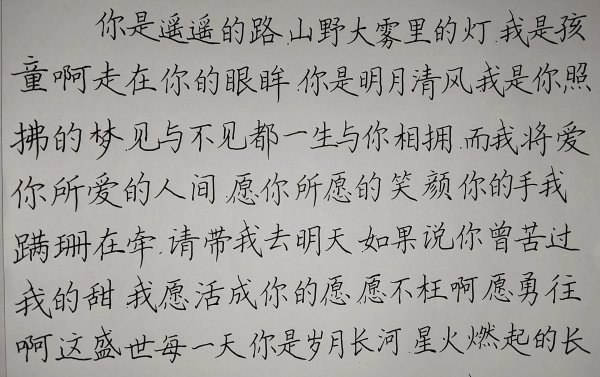 你是遥遥的路.山野大雾里的灯.我是孩
童啊走在你的眼眸.你是明月清风我是你照
拂的梦.见与不见都一生与你相拥.而我将爱
你所爱的人间 愿你所愿的笑颜 你的手我
蹒珊在牵.请带我去明天 如果说你曾苦过
我的甜 我愿活成你的愿 愿不枉啊愿勇往
啊这盛世每一天 你是岁月长河.星火燃起的长